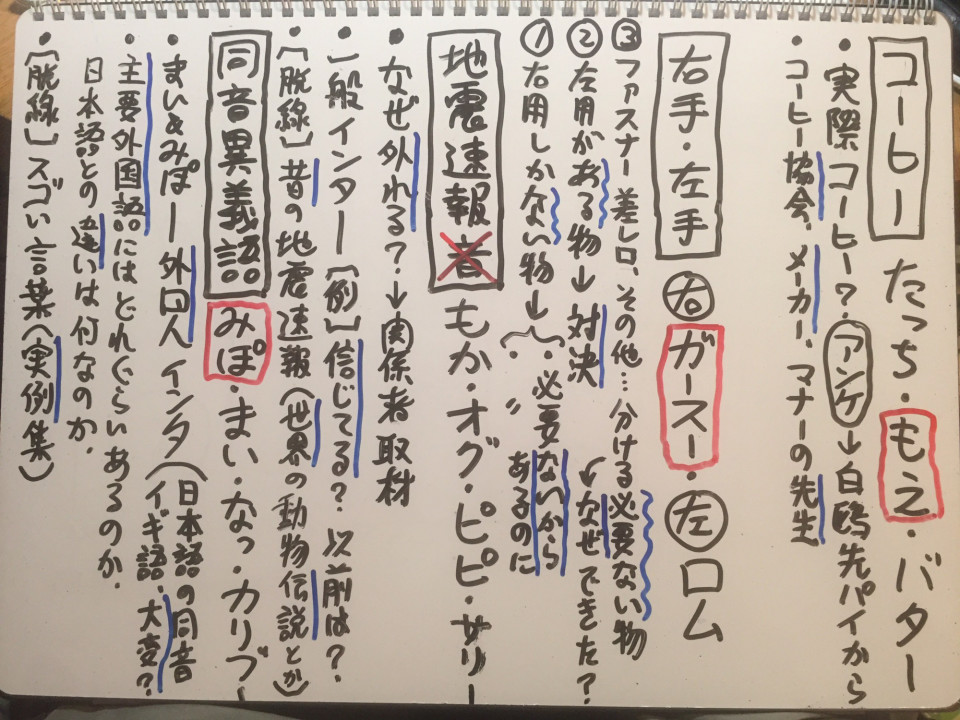 コーヒー たっち・もえ・バター
・実際コーヒー?アンケ→白鴎先パイから
・コーヒー協会、メーカー、マナーの先生
右手・左手 右ガースー・左ロム
③ファスナー差し口、その他…分ける必要ない物
②左用がある物→対決 なぜできた?
①右用しかない物→・必要ないから
・〃あるのに
地震速報者 もか・オグ・ピピ・サリー
・なぜ外れる?→関係者取材
・一般インター【例】信じてる?以前は?
【脱線】昔の地震速報(世界の動物伝説とか)
同音異義語 みぽ・まい・なつ・カリブー
・まい&みぽー外国人インタ(日本語の同音
イギ語、大変?
・主要外国語にはどれぐらいあるのか、
日本語との違いは何なのか、
・【脱線】スゴい言葉(実例集)